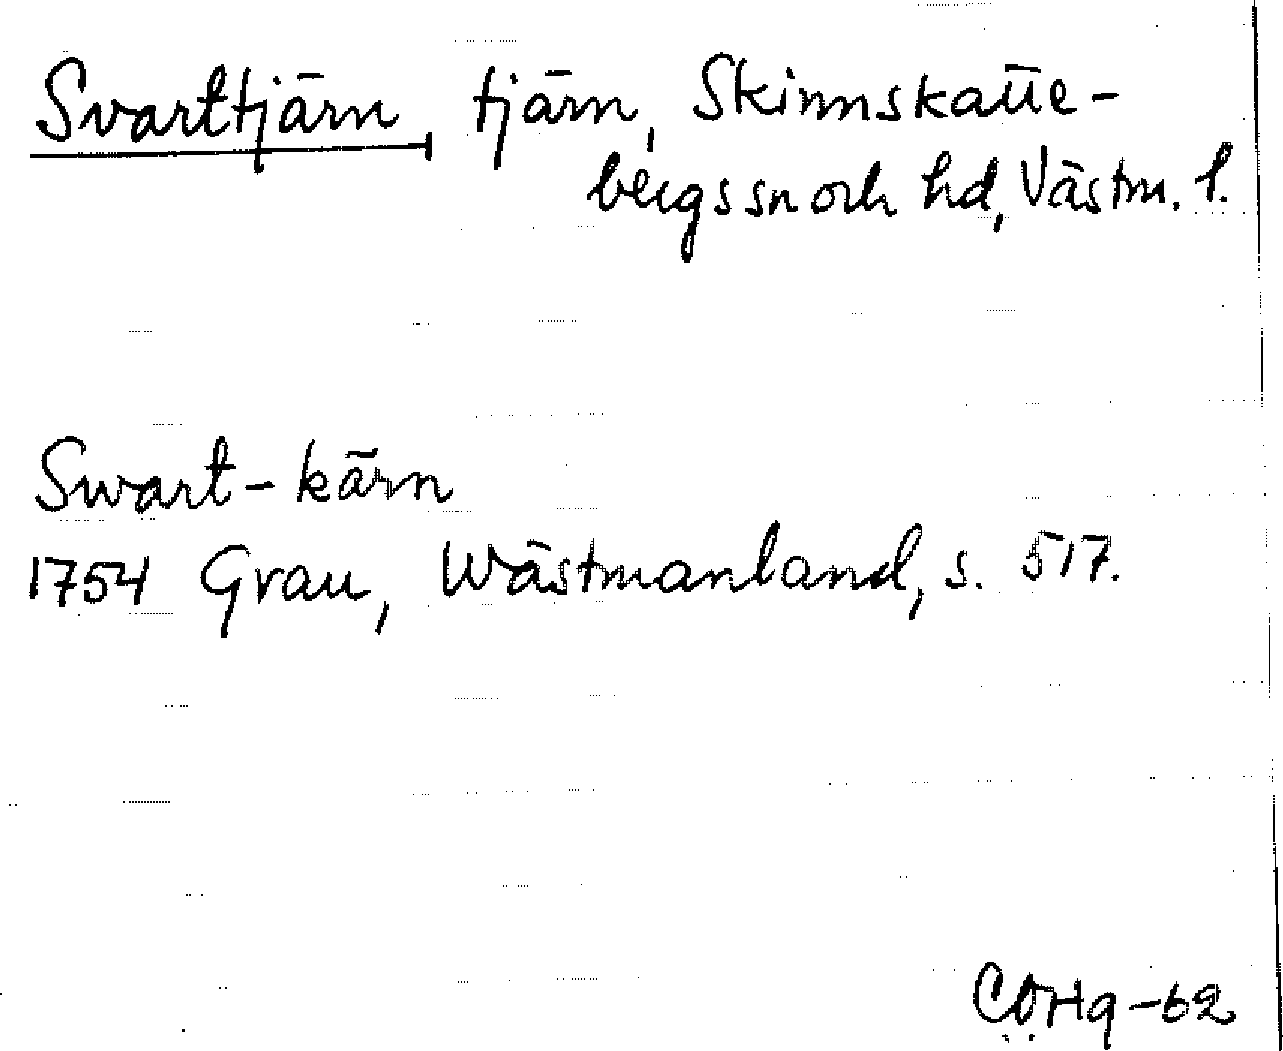 Svarttjärn, tjärn, Skinnskatte-
bergs sn och hd, Västm. l.
Swart-kärn
1754 Grau, Wästmanland, s. 517.